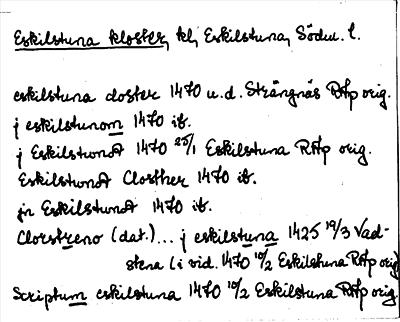 Eskilstuna kloster, kl, Eskilstuna, Södm. l.
eskilstuna closter 1470 u.d. Strängnäs RAp orig.
j eskilstunom 1470 ib.
j Eskilstunom 1470 25/1 Eskilstuna RAp orig.
Eskilstuna Closther 1470 ib.
jn Eskilstuna 1470 ib.
Clorstreno (dat.)... j eskilstuna 1425 19/3 Vad-
stena (i vid. 1470 10/2 Eskilstuna RAp orig)
Scriptum eskilstuna 1470 10/2 Eskilstuna RAp orig.